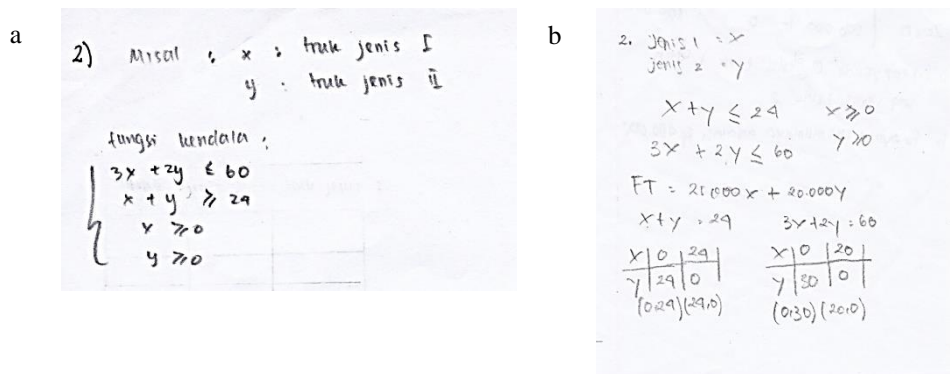 a
2) Misal : x : truk jenis I
y : truk jenis II
fungsi kendala :
3x + 2y ≤ 60
x + y ≥ 24
x ≥ 0
y ≥ 0
b
2. Jenis 1 : x
jenis 2 : y
x + y ≤ 24 x ≥ 0
3x + 2y ≤ 60 y ≥ 0
FT = 25.000x + 20.000y
x + y = 24 3x + 2y = 60
x 0 24 x 0 20
y 24 0 y 30 0
(0,24) (24,0) (0,30) (20,0)